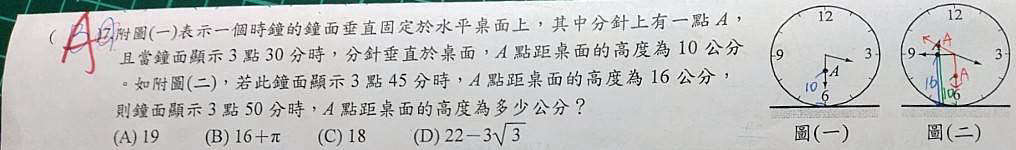 ( A 17. 附圖(一)表示一個時鐘的鐘面垂直固定於水平桌面上，其中分針上有一點 A，
且當鐘面顯示 3 點 30 分時，分針垂直於桌面，A 點距桌面的高度為 10 公分
。如附圖(二)，若此鐘面顯示 3 點 45 分時，A 點距桌面的高度為 16 公分，
則鐘面顯示 3 點 50 分時，A 點距桌面的高度為多少公分？
(A) 19 (B) 16+π (C) 18 (D) 22−3√3
12
9
3
A
10
6
圖(一)
12
A
9
3
A
16
10
6
圖(二)